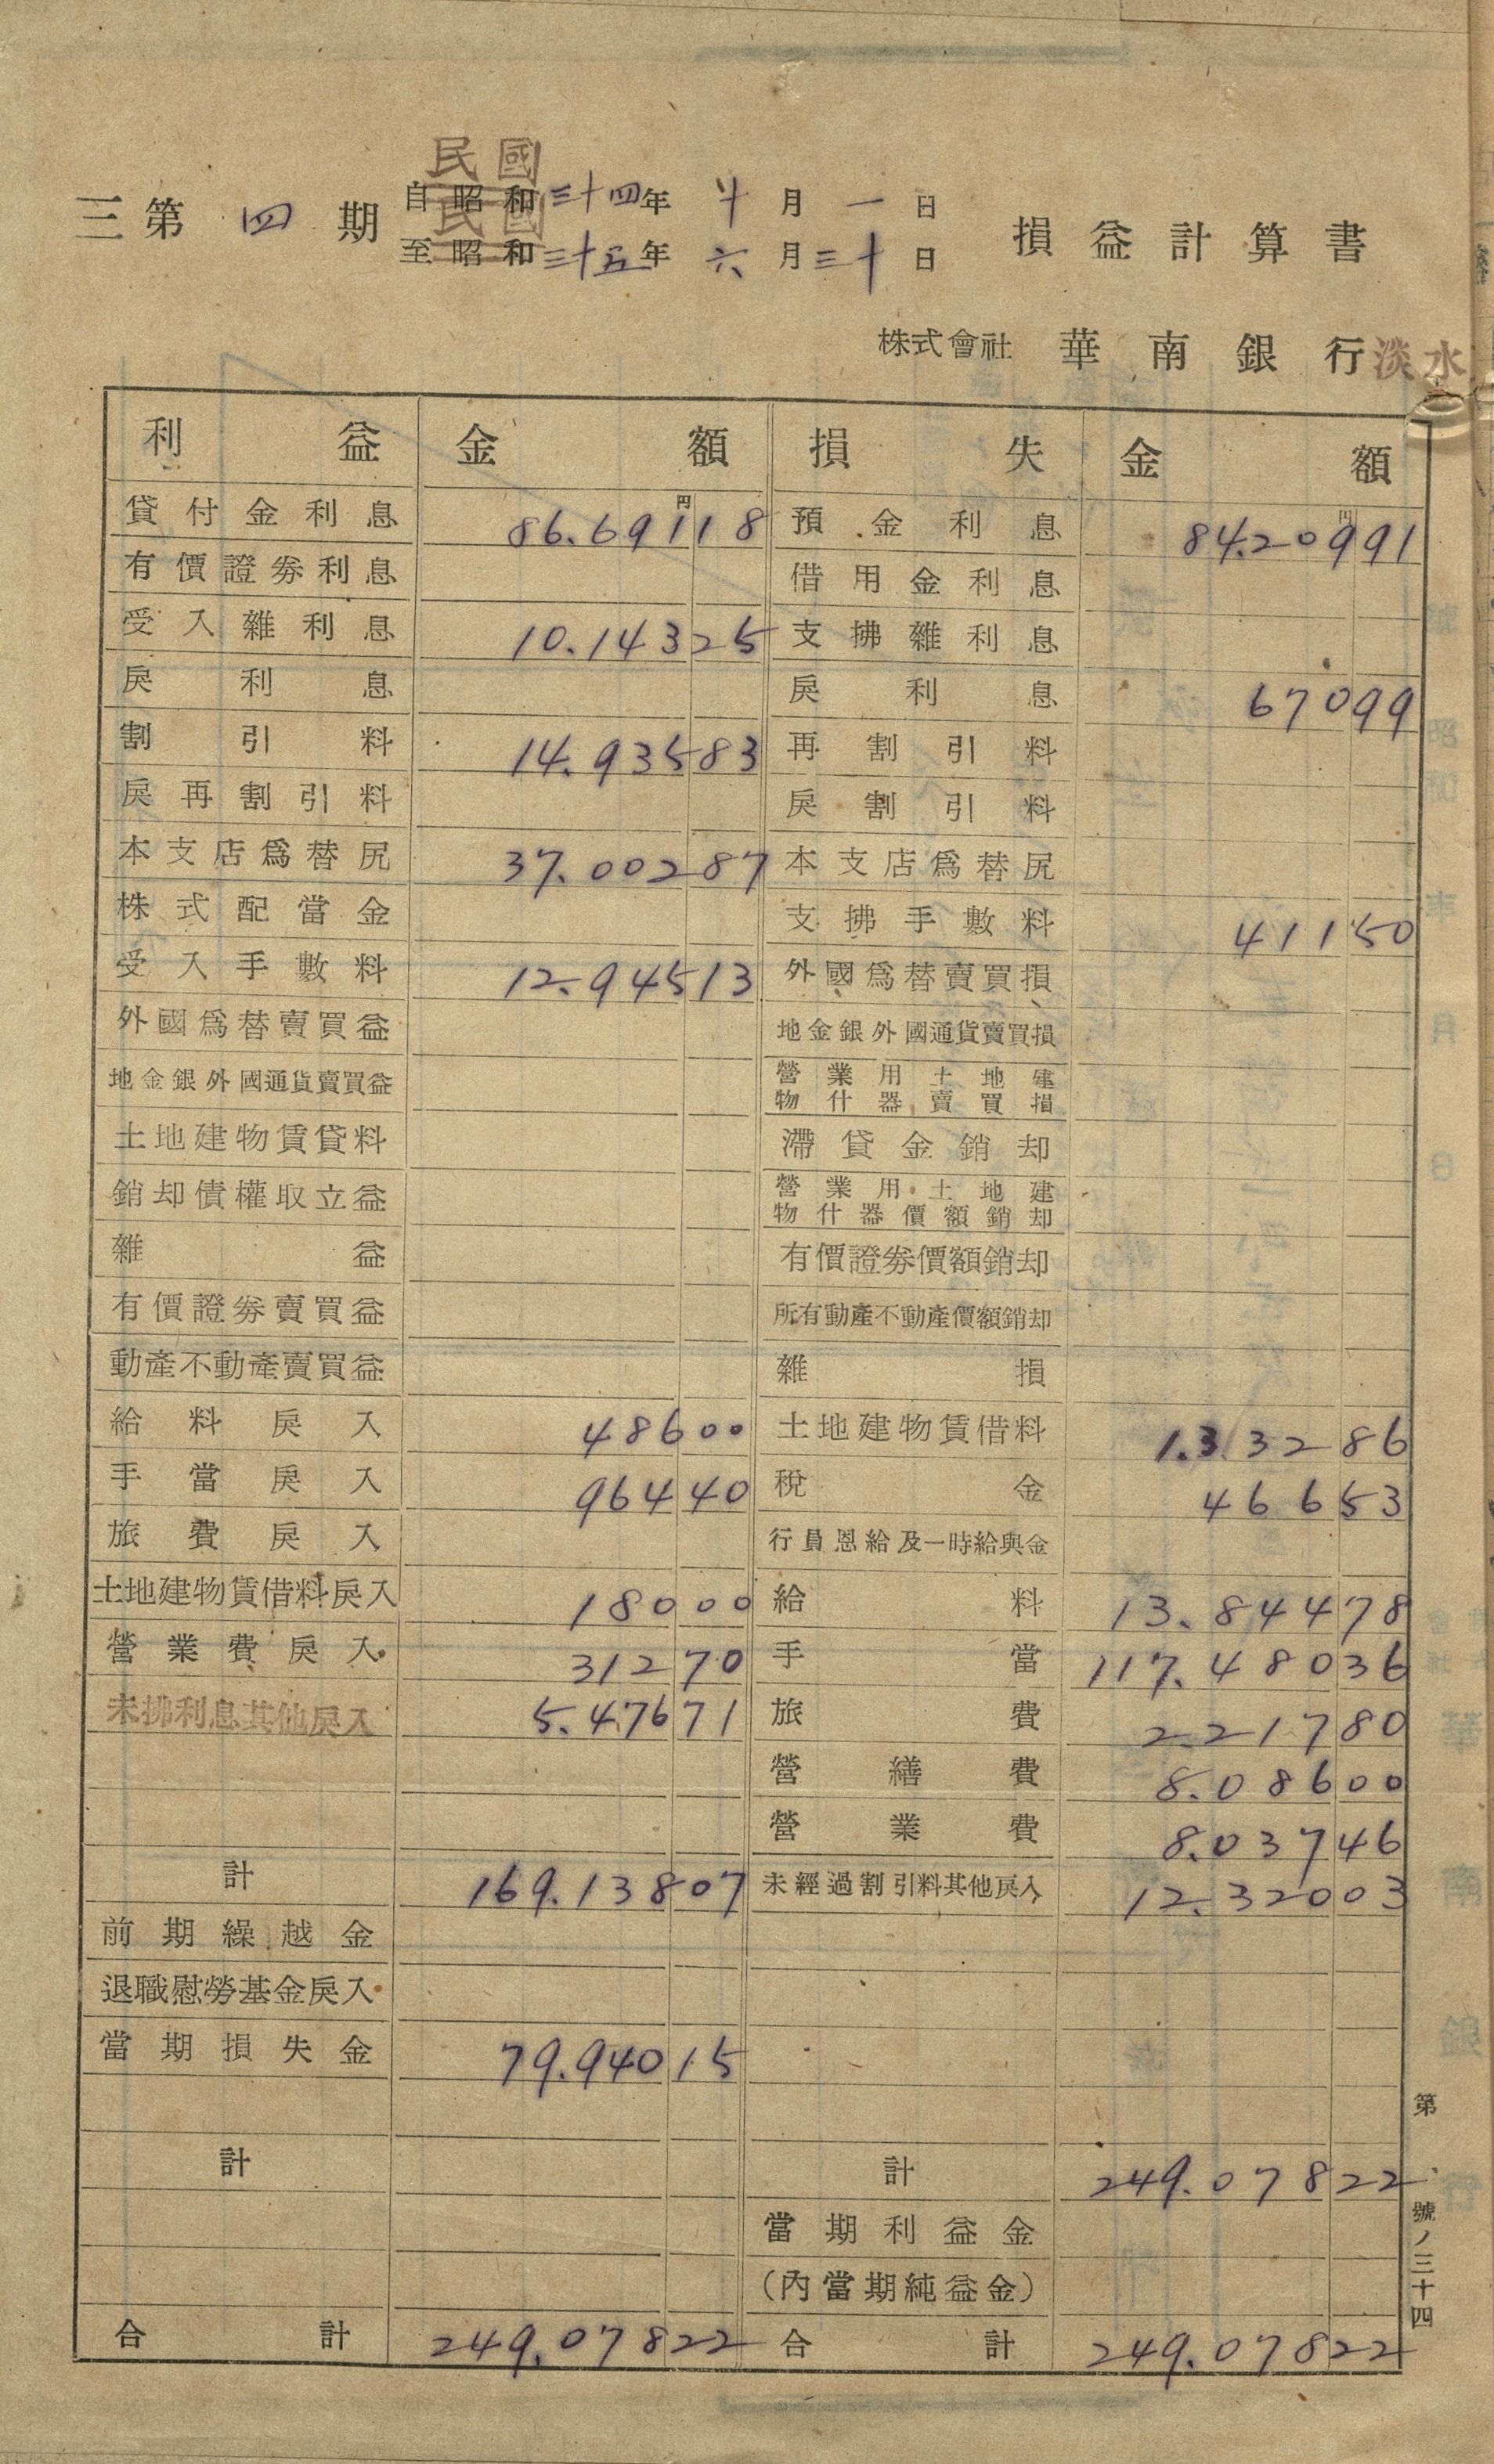 民國
自昭和三十四年 十月一日
三第四期 損益計算書
民國
至昭和三十五年 六月三十日
株式會社 華南銀行 淡水
利益 金額 損失 金額
貸付金利息 86.691 18 預金利息 84.209 91
円 円
有價證券利息 借用金利息
受入雜利息 10.143 25 支拂雜利息
戾利息 戾利息 670 99
割引料 14.935 83 再割引料
戾再割引料 戾割引料
本支店爲替尻 37.002 87 本支店爲替尻
株式配當金 支拂手數料 411 50
受入手數料 12.945 13 外國爲替賣買損
外國爲替賣買益 地金銀外國通貨賣買損
地金銀外國通貨賣買益 營業用土地建物什器賣買損
土地建物賃貸料 滯貸金銷却
銷却債權取立益 營業用土地建物什器價額銷却
雜益 有價證券價額銷却
有價證券賣買益 所有動產不動產價額銷却
動產不動產賣買益 雜損
給料戾入 486 00 土地建物賃借料 1.332 86
手當戾入 964 40 稅金 466 53
旅費戾入 行員恩給及一時給與金
土地建物賃借料戾入 180 00 給料 13.844 78
營業費戾入 312 70 手當 117.480 36
未拂利息其他戾入 5.476 71 旅費 2.217 80
營繕費 8.086 00
營業費 8.037 46
計 169.138 07 未經過割引料其他戾入 12.320 03
前期繰越金
退職慰勞基金戾入
當期損失金 79.940 15
計 計 249.078 22
當期利益金
(內當期純益金)
合計 249.078 22 合計 249.078 22
第 號ノ三十四